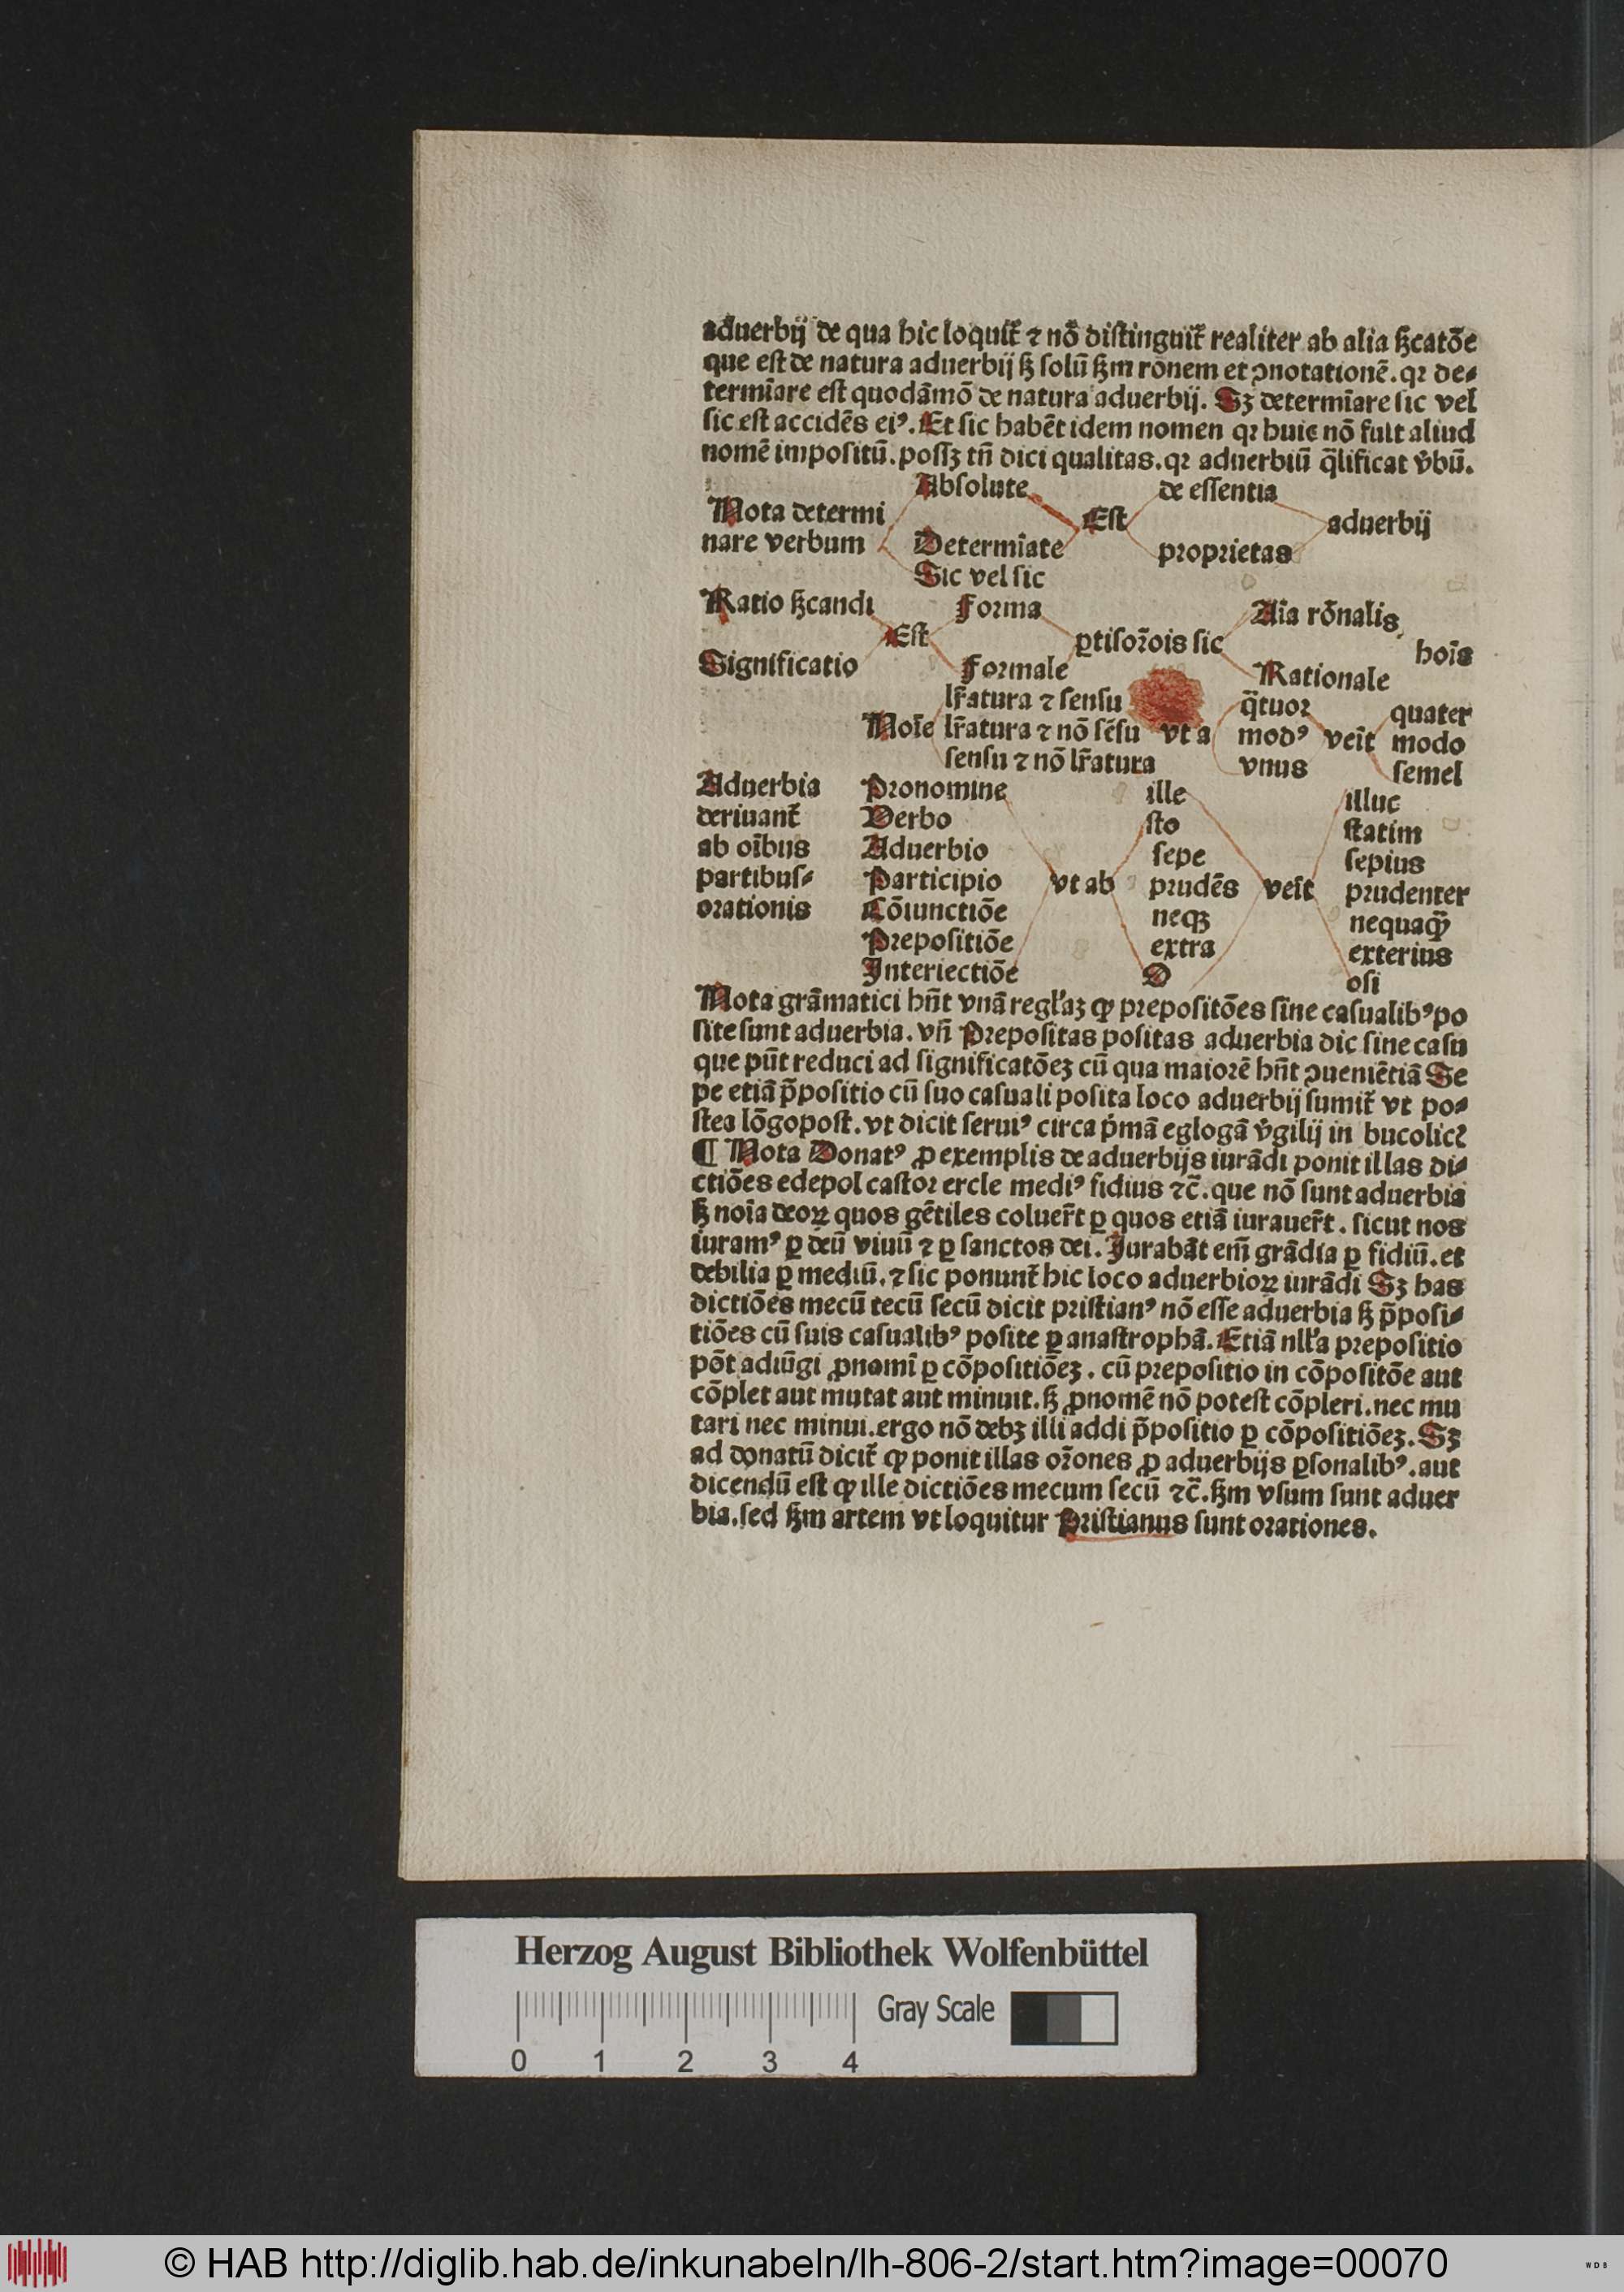 aduerbij de qua hic loquit᷑ ⁊ nō distinguit᷑ realiter ab alia ẜcatōe
que est de natura aduerbij ẜ solū ẜm rōnem et ꝯnotationē. qꝛ de⸗
termīare est quodāmō de natura aduerbij. Sꝫ determīare sic vel
sic est accidēs eiꝰ. Et sic habēt idem nomen qꝛ huic nō fuit aliud
nomē impositū. possꝫ tn̄ dici qualitas. qꝛ aduerbiū q̄lificat v̓bū.
Absolute de essentia
Nota determi Est aduerbij
nare verbum Determīate proprietas
Sic vel sic
Ratio ẜcandi Forma Aīa rōnalis
Est ꝑtisor̄ois sic hoīs
Significatio Formale Rationale
lr̄atura ⁊ sensu q̄tuor quater
Noīe lr̄atura ⁊ nō sēsu vt a modꝰ veīt modo
sensu ⁊ nō lr̄atura vnus semel
Aduerbia Pronomine ille illuc
deriuant᷑ Verbo sto statim
ab oībus Aduerbio sepe sepius
partibus⸗ Participio vt ab prudēs veīt prudenter
orationis Cōiunctiōe neqꝫ nequaꝙ̄
Prepositiōe extra exterius
Interiectiōe O osi
Nota grāmatici hn̄t vnā regl̓aꝫ ꝙ prepositōes sine casualibꝰ po
site sunt aduerbia. vn̄ Prepositas positas aduerbia dic sine casu
que pn̄t reduci ad significatōeꝫ cū qua maiorē hn̄t ꝯueniētiā Se
pe etiā p̄positio cū suo casuali posita loco aduerbij sumit᷑ vt po⸗
stea lōgopost. vt dicit seruiꝰ circa p̓mā eglogā v̓gilij in bucolicꝭ
¶ Nota Donatꝰ ꝓ exemplis de aduerbijs iurādi ponit illas di⸗
ctiōes edepol castor ercle mediꝰ fidius ⁊c̄. que nō sunt aduerbia
ẜ noīa deoꝝ quos gētiles coluer̄t ꝑ quos etiā iurauer̄t. sicut nos
iuramꝰ ꝑ deū viuū ⁊ ꝑ sanctos dei. Jurabāt em̄ grādia ꝑ fidiū. et
debilia ꝑ mediū. ⁊ sic ponunt᷑ hic loco aduerbioꝝ iurādi Sꝫ has
dictiōes mecū tecū secū dicit pristianꝰ nō esse aduerbia ẜ p̄posi⸗
tiōes cū suis casualibꝰ posite ꝑ anastrophā. Etiā nll̓a prepositio
pōt adiūgi ꝓnomī ꝑ cōpositiōeꝫ. cū prepositio in cōpositōe aut
cōplet aut mutat aut minuit. ẜ ꝓnomē nō potest cōpleri. nec mu
tari nec minui. ergo nō debꝫ illi addi p̄positio ꝑ cōpositiōeꝫ. Sꝫ
ad donatū dicit᷑ ꝙ ponit illas or̄ones ꝓ aduerbijs ꝑsonalibꝰ. aut
dicendū est ꝙ ille dictiōes mecum secū ⁊c̄. ẜm vsum sunt aduer
bia. sed ẜm artem vt loquitur Pristianus sunt orationes.
Herzog August Bibliothek Wolfenbüttel
Gray Scale
0 1 2 3 4
© HAB http://diglib.hab.de/inkunabeln/lh-806-2/start.htm?image=00070
WDB